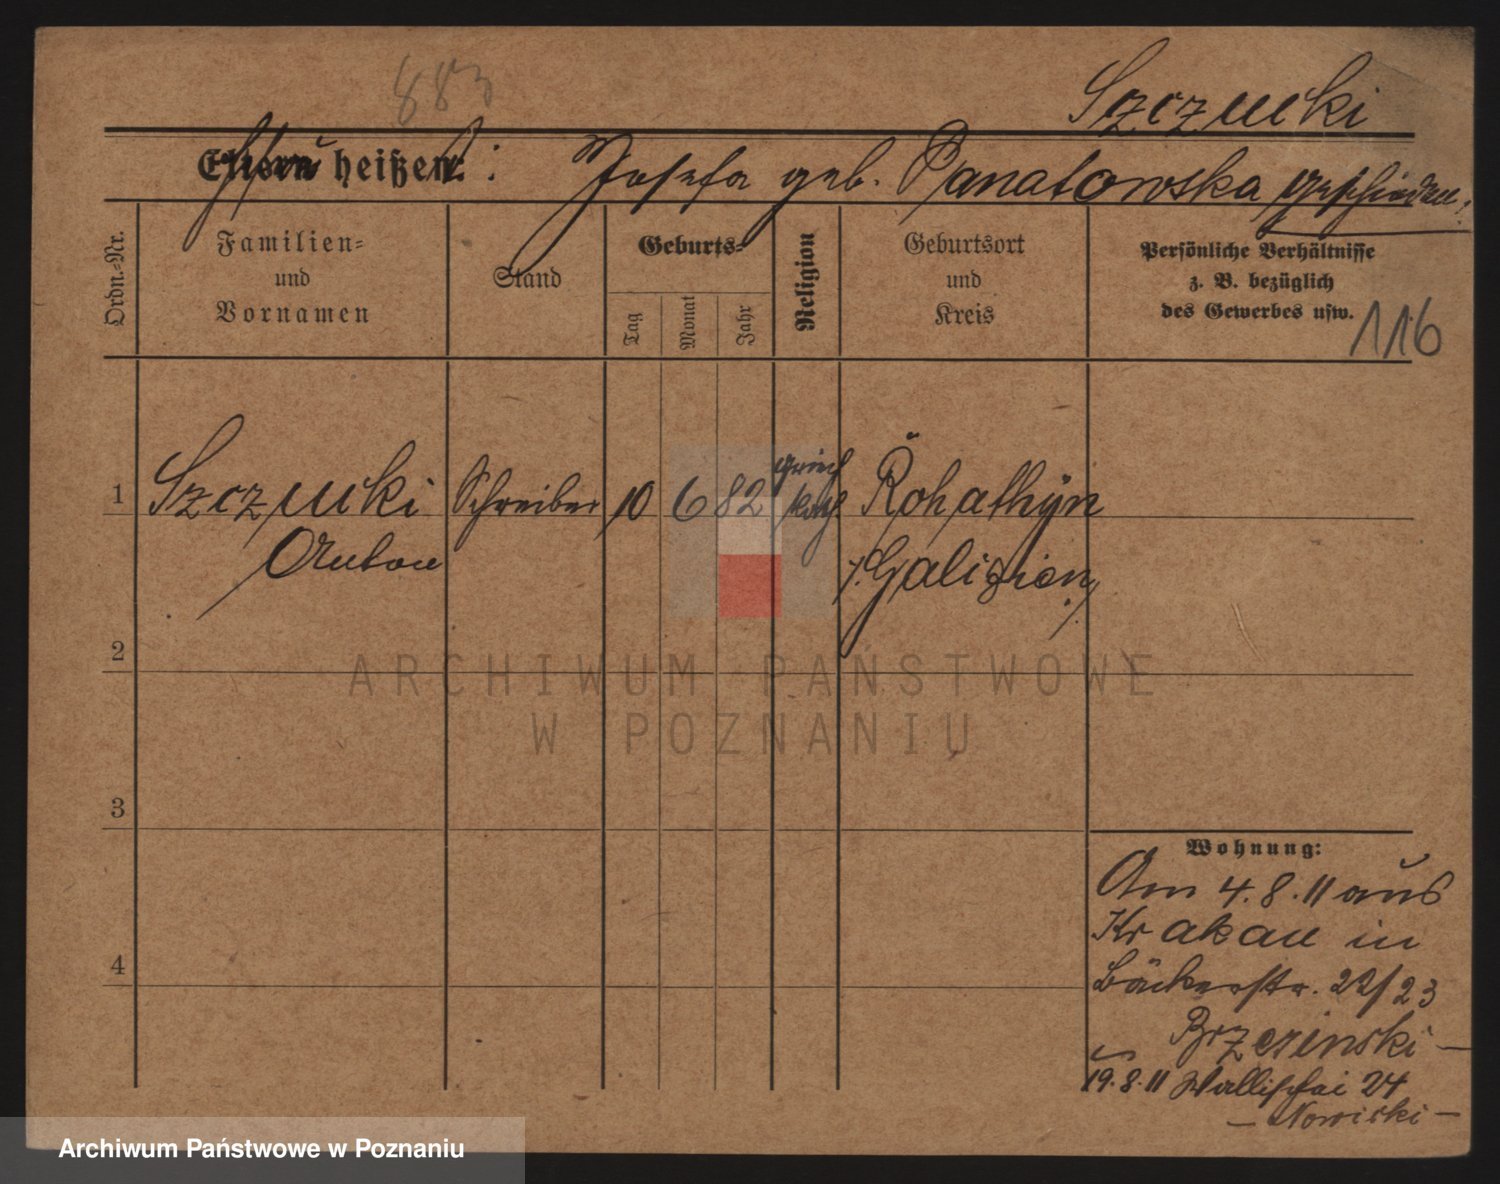 883
Szczucki
Eltern heißen:
Frau : Josefa geb. Panatowska geschieden.
Ordn.-Nr.
Familien-
und
Vornamen
Stand
Geburts-
Tag
Monat
Jahr
Religion
Geburtsort
und
Kreis
Persönliche Verhältnisse
z. B. bezüglich
des Gewerbes usw.
116
1 Szczucki Schreiber 10 6 82 griech kath Rohathyn
Anton /.Galizien./
2
3
4
Wohnung:
Am 4.8.11 aus
Krakau in
Bäckerstr. 22/23
Brzezinski -
19.8.11 Wallischei 24
- Nowicki -
ARCHIWUM PAŃSTWOWE
W POZNANIU
Archiwum Państwowe w Poznaniu